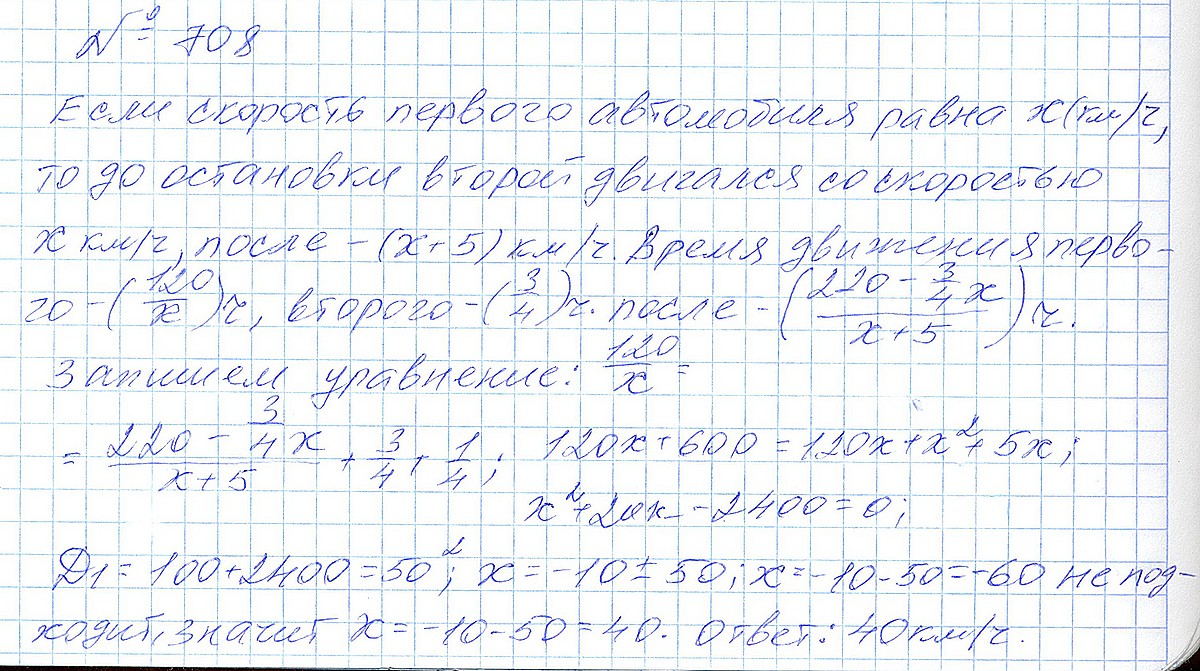 № 708
Если скорость первого автомобиля равна x(км/ч,
то до остановки второй двигался со скоростью
x км/ч, после – (x+5) км/ч. Время движения перво-
го – (120/x) ч, второго – (3/4) ч. после – ((220 - 3/4 x)/(x+5)) ч.
Запишем уравнение: 120/x =
= (220 - 3/4 x)/(x+5) + 3/4 + 1/4; 120x+600=120x+x²+5x;
x²+20x--2400=0;
D1=100+2400=50²; x=-10±50; x=-10-50=-60 не под-
ходит, значит x=-10-50=40. Ответ: 40км/ч.